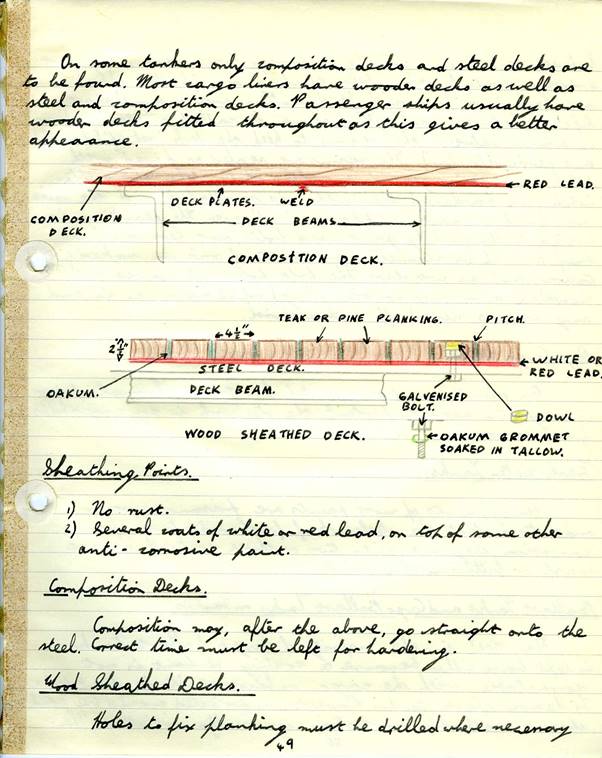 On some tankers only composition decks and steel decks are
to be found. Most cargo liners have wooden decks as well as
steel and composition decks. Passenger ships usually have
wooden decks fitted throughout as this gives a better
appearance.
RED LEAD.
DECK PLATES. WELD
COMPOSITION
DECK.
DECK BEAMS
COMPOSITION DECK.
TEAK OR PINE PLANKING. PITCH.
4½"
2½"
WHITE OR
RED LEAD.
STEEL DECK.
OAKUM.
DECK BEAM.
GALVENISED
BOLT.
DOWL
WOOD SHEATHED DECK.
OAKUM GROMMET
SOAKED IN TALLOW.
Sheathing Points.
1) No rust.
2) Several coats of white or red lead, on top of some other
anti-corrosive paint.
Composition Decks.
Composition may, after the above, go straight onto the
steel. Correct time must be left for hardering.
Wood Sheathed Decks.
Holes to fix planking must be drilled where necessary
49